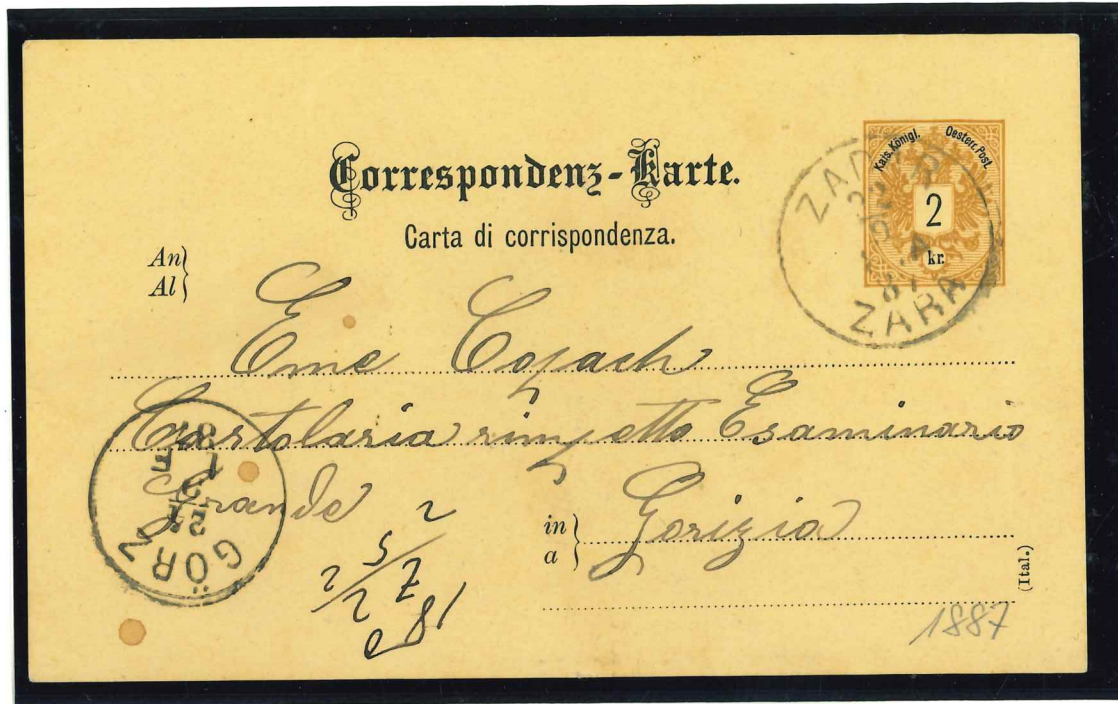 Correspondenz-Karte.
Carta di corrispondenza.
Kais. Königl. Oesterr. Post.
2
kr.
ZADAR
ZARA
An
Al
Eme Copach
Cartolaria rimpetto Esaminario
Grande
in
a
Gorizia
GÖRZ
(Ital.)
1887